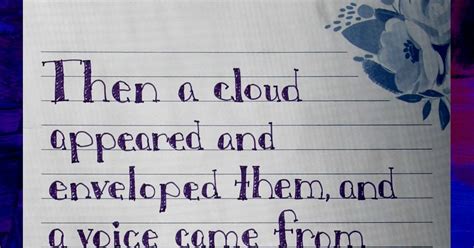 Then a cloud
appeared and
enveloped them, and
a voice came from